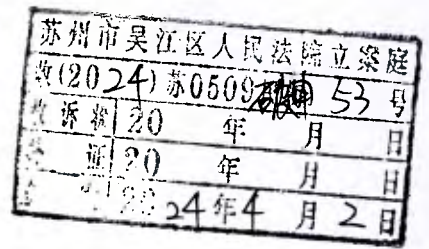 苏州市吴江区人民法院立案庭
收(2024)苏0509破申53号
收诉状 20 年 月 日
证 20 年 月 日
2024年4月2日